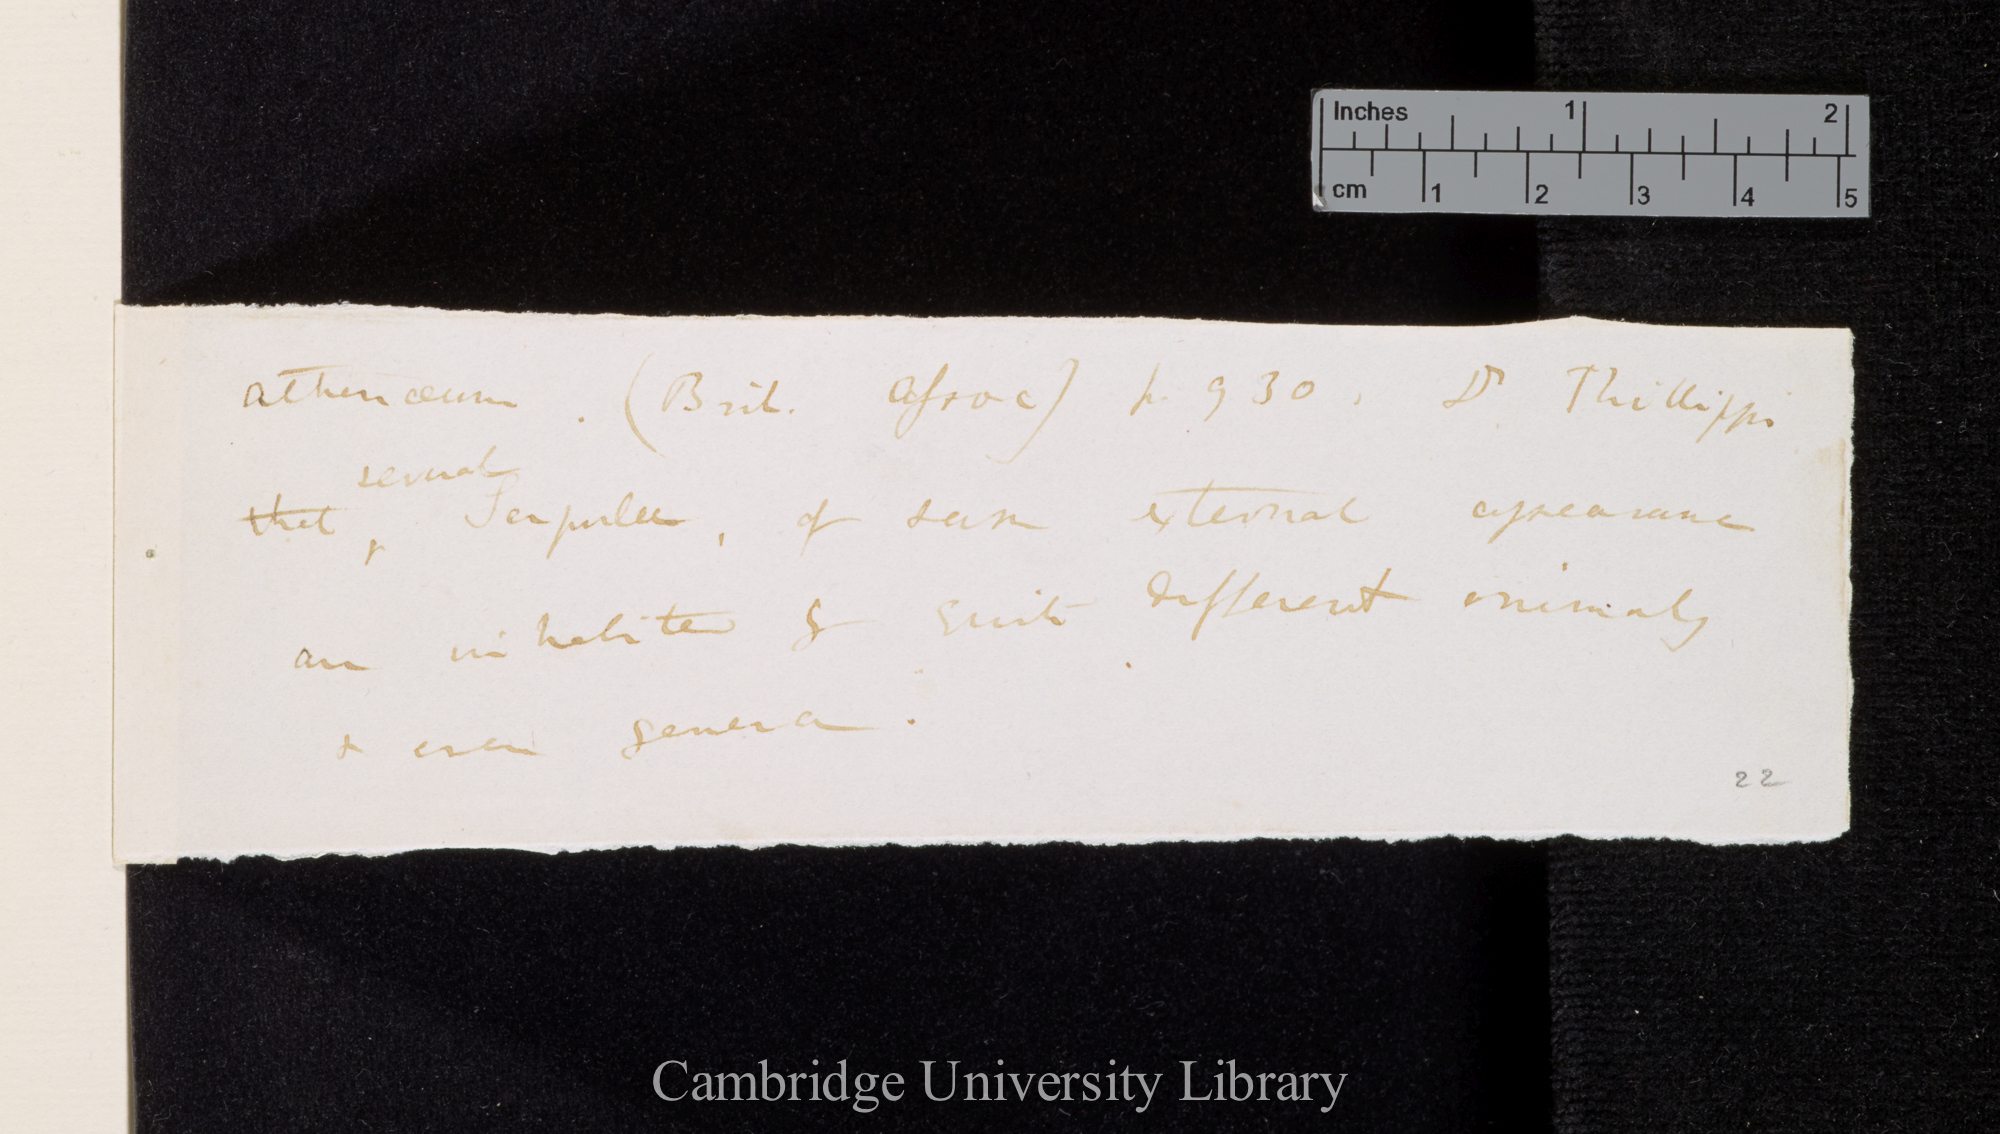 Inches 1 2
cm 1 2 3 4 5
Athenæum. (Brit. Assoc) p. 930. Dr Phillippi
several
that, Serpulæ, of same external appearance
are inhabited by quite different animals
& even genera.
22
Cambridge University Library